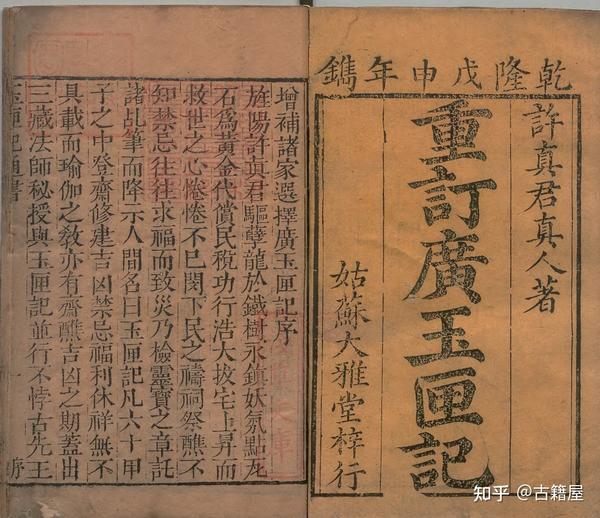 乾隆戊申年鐫
許真君真人著
重訂廣玉匣記
姑蘇大雅堂梓行
增補諸家選擇廣玉匣記序
旌陽許真君驅孽龍於鐵樹永鎮妖氛點瓦
石爲黃金代償民稅功行浩大拔宅上昇而
救世之心惓惓不已閔下民之禱祠祭醮不
知禁忌往往求福而致災乃檢靈寶之章託
諸乩筆而降示人間名曰玉匣記凡六十甲
子之中登齋修建吉凶禁忌福利休祥無不
具載而瑜伽之教亦有齋醮吉凶之期蓋出
三藏法師秘授與玉匣記並行不悖古先王
玉匣記通書
序
一
知乎 @古籍屋